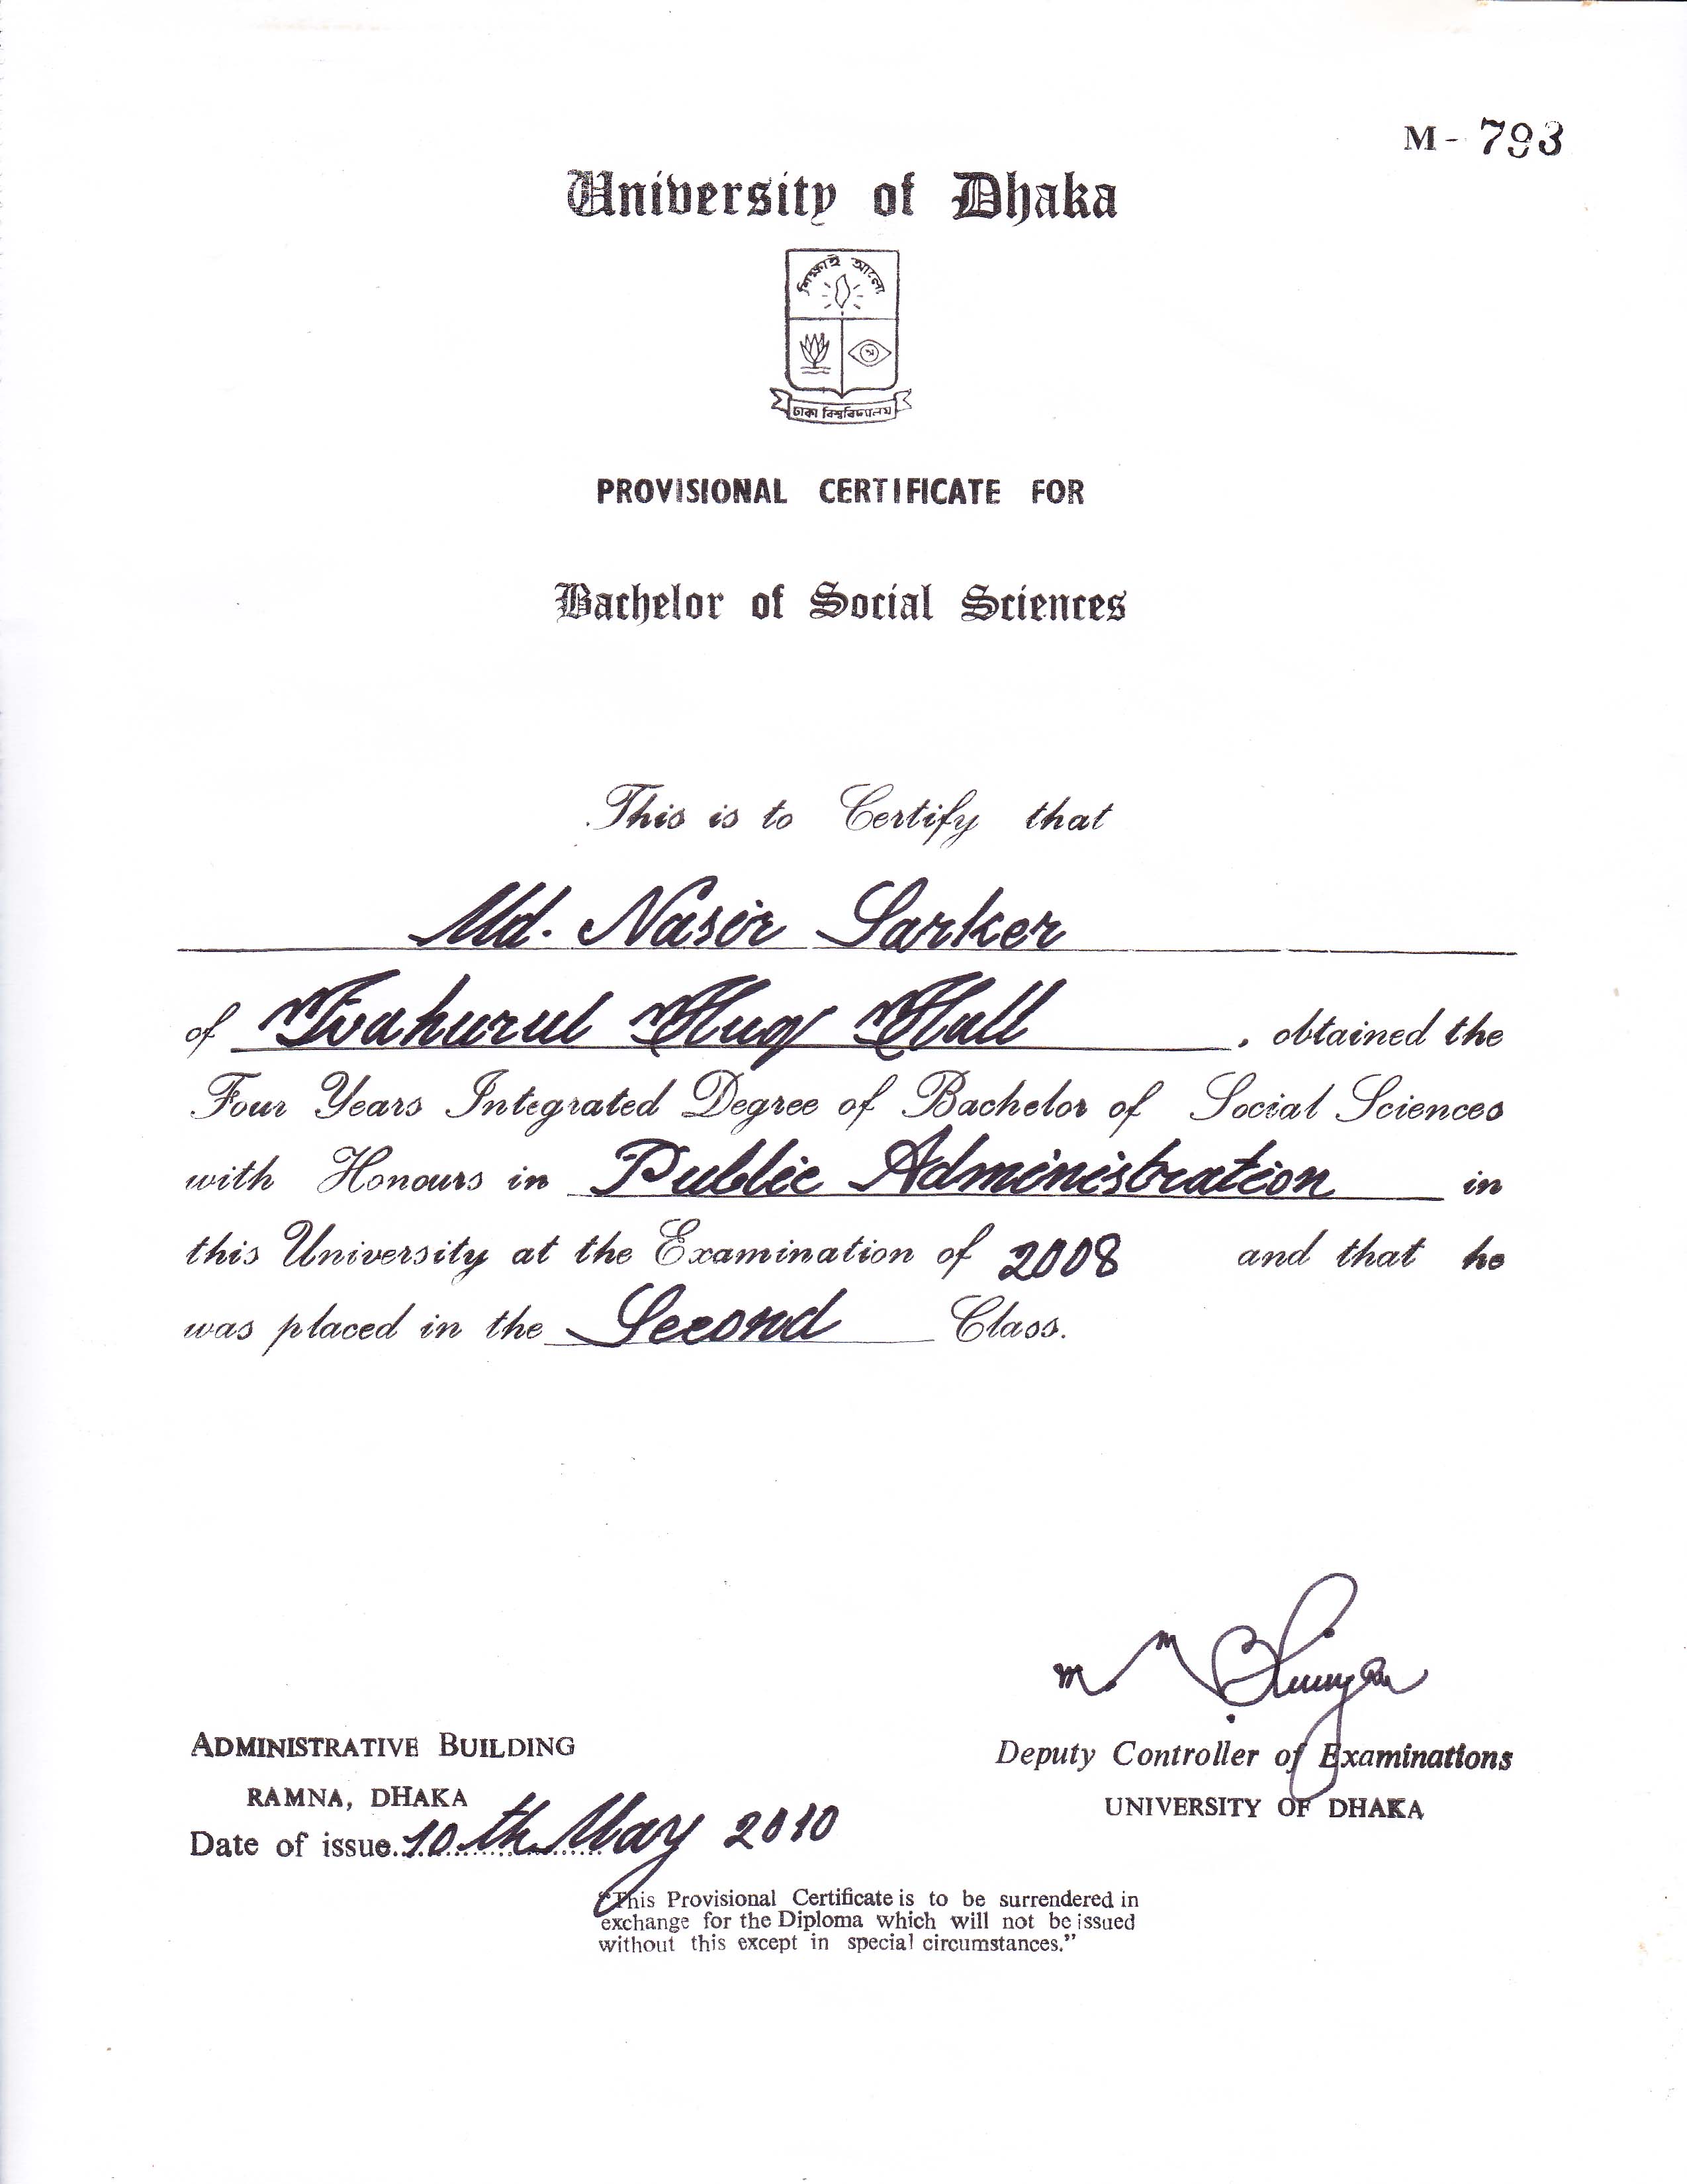 M - 793
University of Dhaka
শিক্ষাই আলো
ঢাকা বিশ্ববিদ্যালয়
PROVISIONAL CERTIFICATE FOR
Bachelor of Social Sciences
This is to Certify that
Md. Nasir Sarker
of Zahurul Huq Hall, obtained the
Four Years Integrated Degree of Bachelor of Social Sciences
with Honours in Public Administration in
this University at the Examination of 2008 and that he
was placed in the Second Class.
ADMINISTRATIVE BUILDING
RAMNA, DHAKA
Date of issue. 10th May 2010
Deputy Controller of Examinations
UNIVERSITY OF DHAKA
"This Provisional Certificate is to be surrendered in
exchange for the Diploma which will not be issued
without this except in special circumstances."